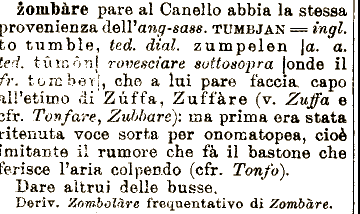 żombàre pare al Canello abbia la stessa
provenienza dell'ang-sass. TUMBJAN = ingl.
to tumble, ted. dial. zumpelen [a. a.
ted. tûmôn] rovesciare sottosopra [onde il
fr. tomber], che a lui pare faccia capo
all'etimo di Zúffa, Zuffàre (v. Zuffa e
cfr. Tonfare, Zubbare): ma prima era stata
ritenuta voce sorta per onomatopea, cioè
imitante il rumore che fà il bastone che
ferisce l'aria colpendo (cfr. Tonfo).
Dare altrui delle busse.
Deriv. Zombolàre frequentativo di Zombàre.